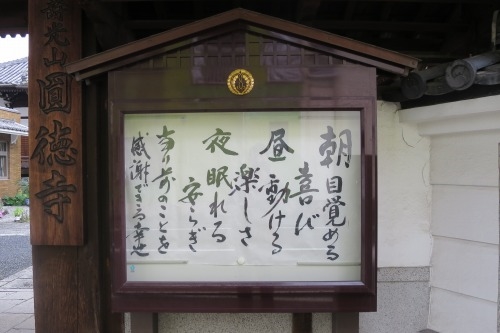 壽光山圓徳寺
朝 目覚める
喜び
昼 働ける
楽しさ
夜 眠れる
安らぎ
当り前のことを
感謝できる幸せ